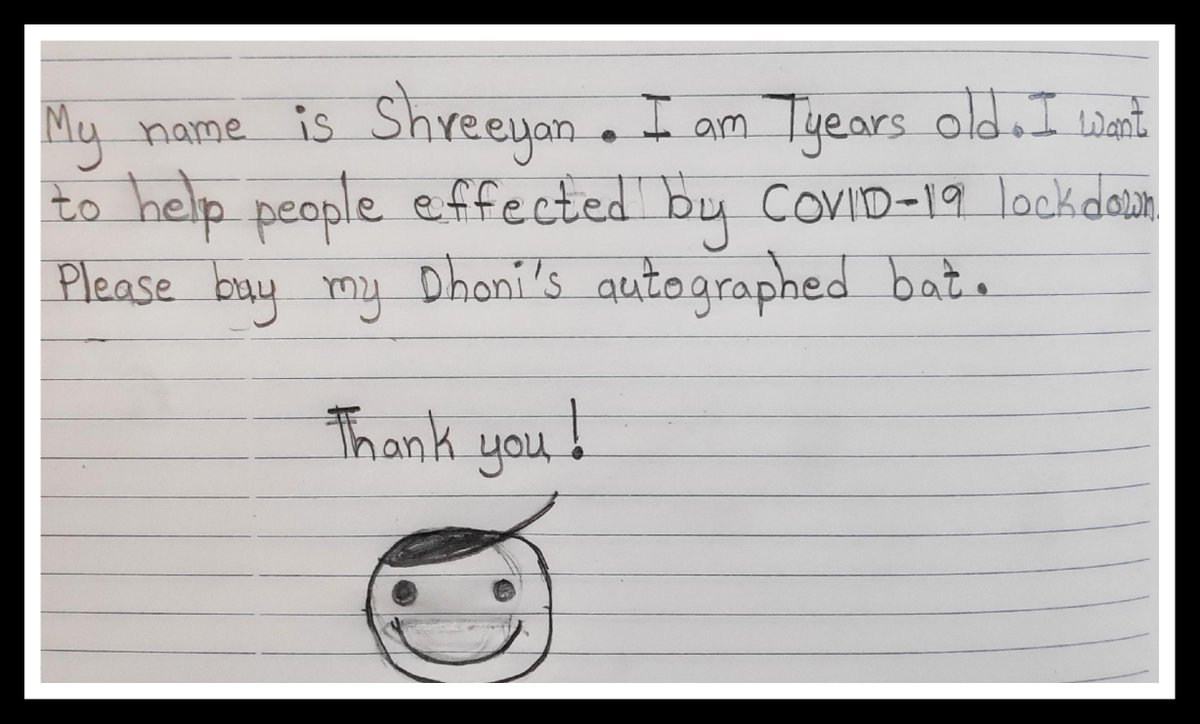 My name is Shreeyan. I am 7years old. I want
to help people effected by COVID-19 lockdown.
Please buy my Dhoni's autographed bat.
Thank you!